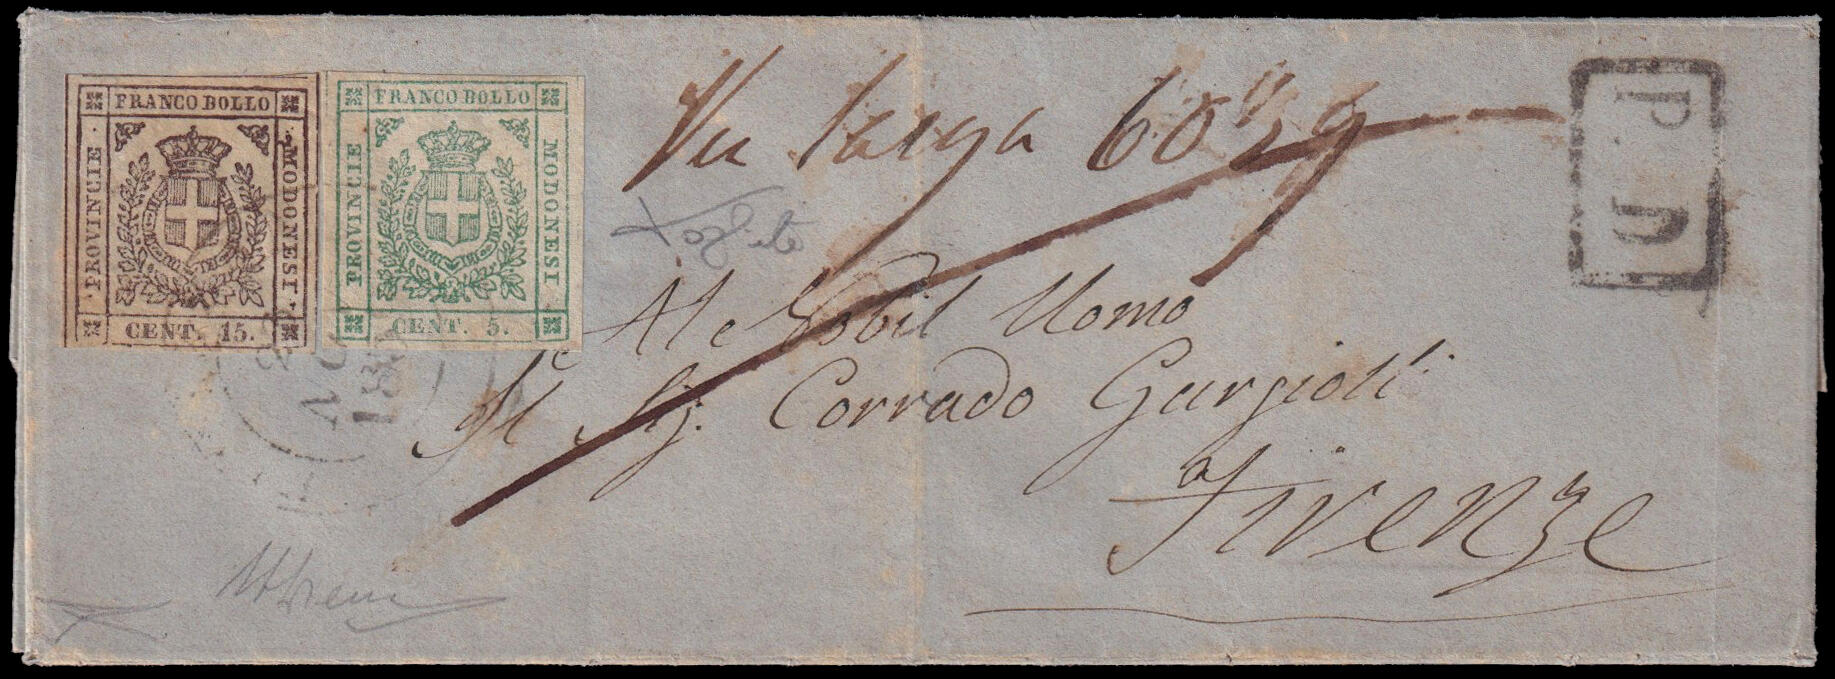 FRANCO BOLLO
PROVINCIE
MODONESI
CENT. 15.
FRANCO BOLLO
PROVINCIE
MODONESI
CENT. 5.
Via larga 60
P.D.
Al Nobil Uomo
Il Sig. Corrado Gargiolli
Firenze